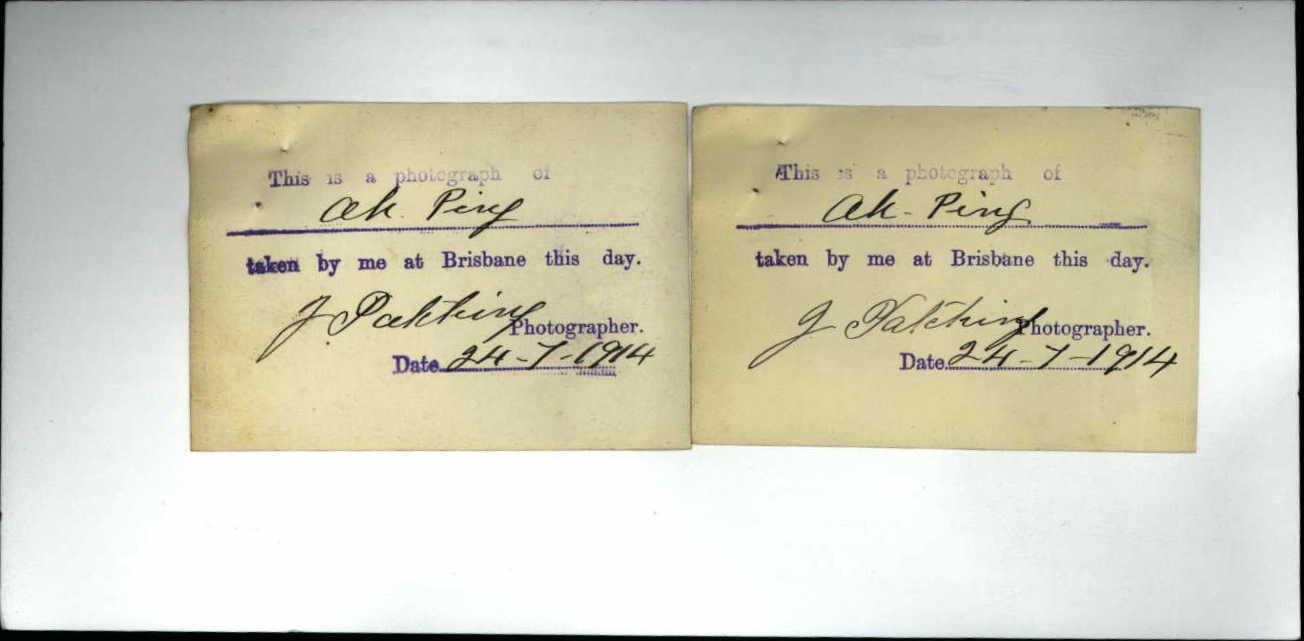 This is a photograph of
Ah. Ping
taken by me at Brisbane this day.
J
Photographer.
Date 24-7-1914
This is a photograph of
Ah-Ping
taken by me at Brisbane this day.
J
Photographer.
Date 24-7-1914